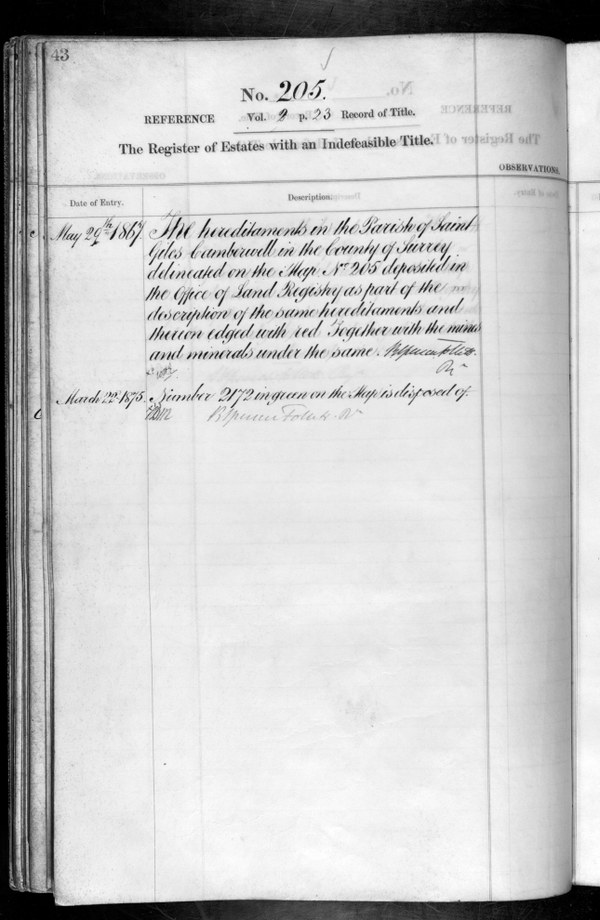 43
No. 205.
REFERENCE Vol. 2 p. 23 Record of Title.
The Register of Estates with an Indefeasible Title.
OBSERVATIONS.
Date of Entry. Description.
May 29th 1867. The hereditaments in the Parish of Saint
Giles Camberwell in the County of Surrey
delineated on the Map No 205 deposited in
the Office of Land Registry as part of the
description of the same hereditaments and
thereon edged with red Together with the mines
and minerals under the same. B Spencer Follett
Rr
March 22 1875. Number 2172 in green on the Map is disposed of.
B Spencer Follett Rr